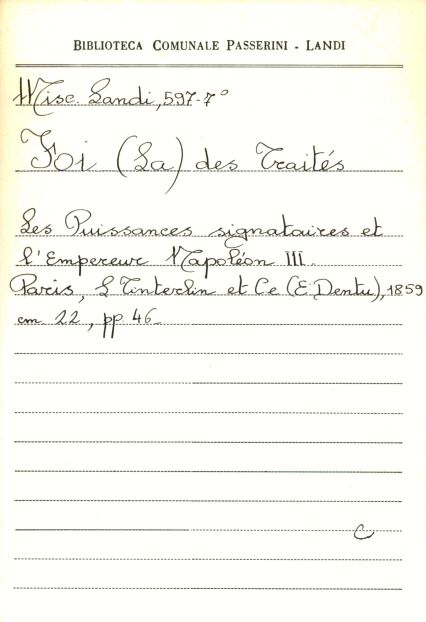 BIBLIOTECA COMUNALE PASSERINI - LANDI
Misc. Landi, 597-7°
Foi (La) des Traités
Les Puissances signataires et
l'Empereur Napoléon III.
Paris, L Tinterlin et Ce (E. Dentu), 1859
cm 22, pp 46-
C